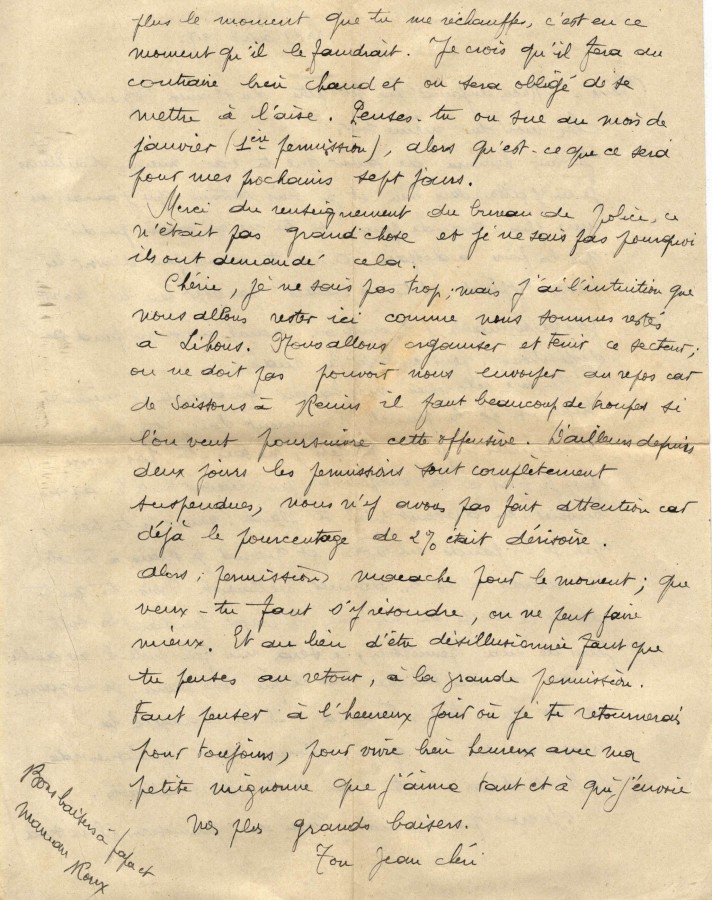 plus le moment que tu me réchauffes, c'est en ce
moment qu'il le faudrait. Je crois qu'il fera au
contraire bien chaud et on sera obligé de se
mettre à l'aise. Penses-tu on sue au mois de
janvier (1ère permission), alors qu'est-ce que ce sera
pour mes prochains sept jours.
Merci du renseignement du bureau de Police, ce
n'était pas grand'chose et je ne sais pas pourquoi
ils ont demandé cela.
Chérie, je ne sais pas trop, mais j'ai l'intuition que
nous allons rester ici comme nous sommes restés
à Lihons. Nous allons organiser et tenir ce secteur;
on ne doit pas pouvoir nous envoyer au repos car
de Soissons à Reims il faut beaucoup de troupes si
l'on veut poursuivre cette offensive. D'ailleurs depuis
deux jours les permissions sont complètement
suspendues, nous n'y avons pas fait attention car
déjà le pourcentage de 2% était dérisoire.
Alors, permission macache pour le moment; que
veux-tu faut s'y résoudre, on ne peut faire
mieux. Et au lieu d'être désillusionnée faut que
tu penses au retour, à la grande permission.
Faut penser à l'heureux jour où je te retournerai
pour toujours, pour vivre bien heureux avec ma
petite mignonne que j'aime tant et à qui j'envoie
mes plus grands baisers.
Ton Jean chéri
Bons baisers à papa et
maman Roux